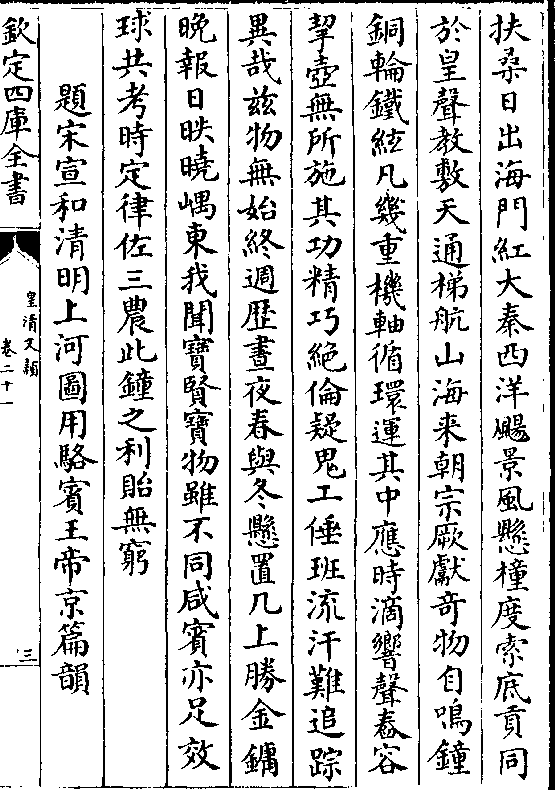 扶桑日出海門紅大秦西洋颺景風懸橦度索底貢同
於皇聲教敷天通梯航山海来朝宗厥獻竒物自鳴鐘
銅輪鐵絃凡幾重機軸循環運其中應時滴響聲舂容
挈壺無所施其功精巧絶倫疑鬼工倕班流汗難追踪
異哉兹物無始終週歴晝夜春與冬懸置几上勝金鏞
晩報日昳曉嵎東我聞寶賢寶物雖不同咸賓亦足效
球共考時定律佐三農此鐘之利貽無窮
題宋宣和清明上河圖用駱賓王帝京篇韻
欽定四庫全書
皇清文穎
卷二十一
三